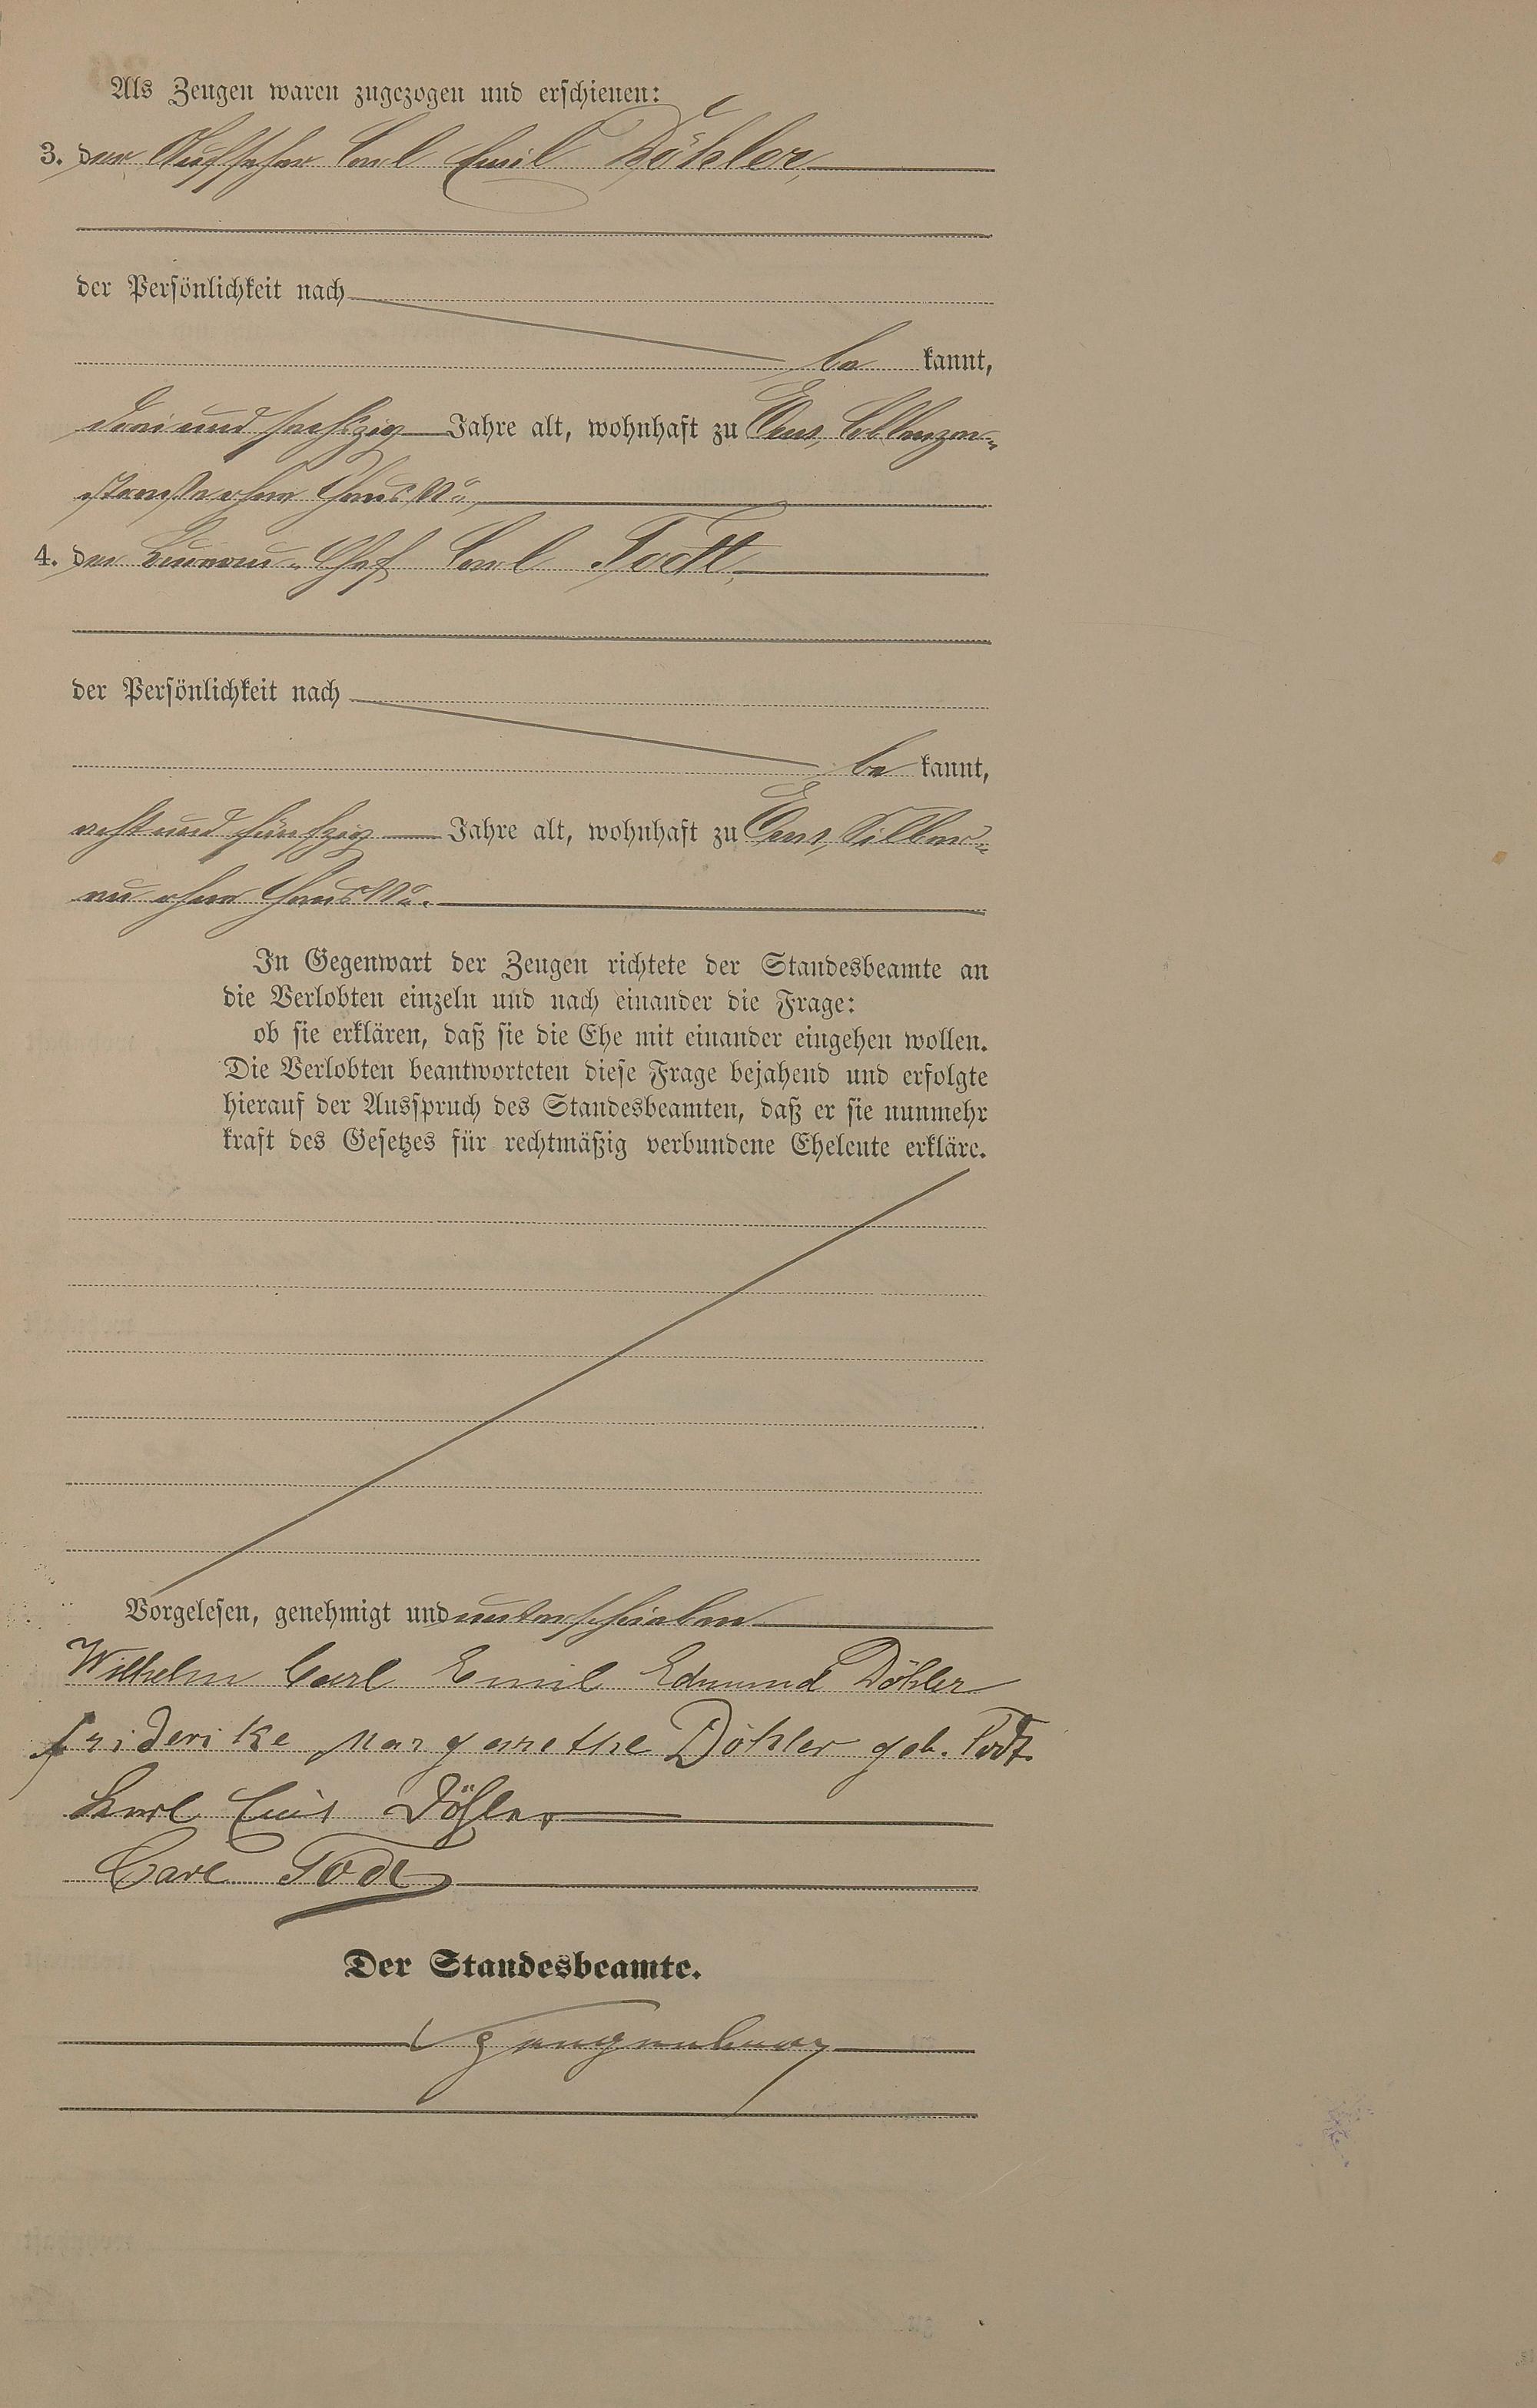 Als Zeugen waren zugezogen und erschienen:
3. der Aufseher Carl Emil Döhler,
der Persönlichkeit nach
be kannt,
drei und sechszig Jahre alt, wohnhaft zu Ems, Coblenzer-
straße ohne Haus No,
4. der Bureau-Chef Carl Todt,
der Persönlichkeit nach
be kannt,
acht und fünfzig Jahre alt, wohnhaft zu Ems, Silber-
au ohne Haus No.
In Gegenwart der Zeugen richtete der Standesbeamte an
die Verlobten einzeln und nach einander die Frage:
ob sie erklären, daß sie die Ehe mit einander eingehen wollen.
Die Verlobten beantworteten diese Frage bejahend und erfolgte
hierauf der Ausspruch des Standesbeamten, daß er sie nunmehr
kraft des Gesetzes für rechtmäßig verbundene Eheleute erkläre.
Vorgelesen, genehmigt und unterschrieben
Wilhelm Carl Emil Edmund Döhler
Friderike Margarethe Döhler geb. Todt.
Karl Emil Döhler
Carl Todt
Der Standesbeamte.